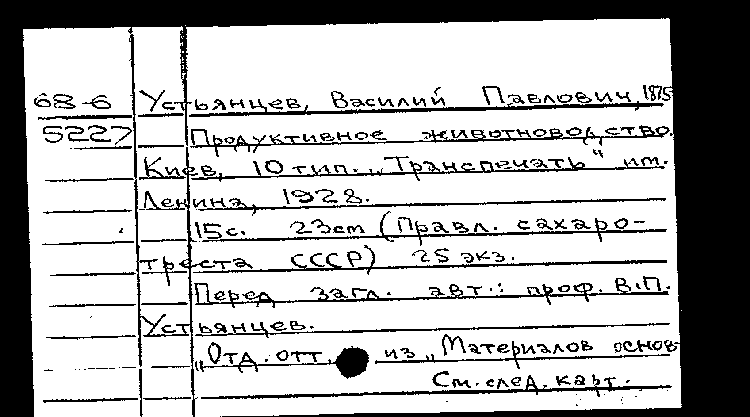 68-6 Устьянцев, Василий Павлович, 1875
5227 Продуктивное животноводство.
Киев, 10 тип. „Транспечать“ им.
Ленина, 1928.
15с. 23cm (Правл. сахаро-
треста СССР) 25 экз.
Перед загл. авт.: проф. В.П.
Устьянцев.
„Отд. отт. из „Материалов основ
См. след. карт.